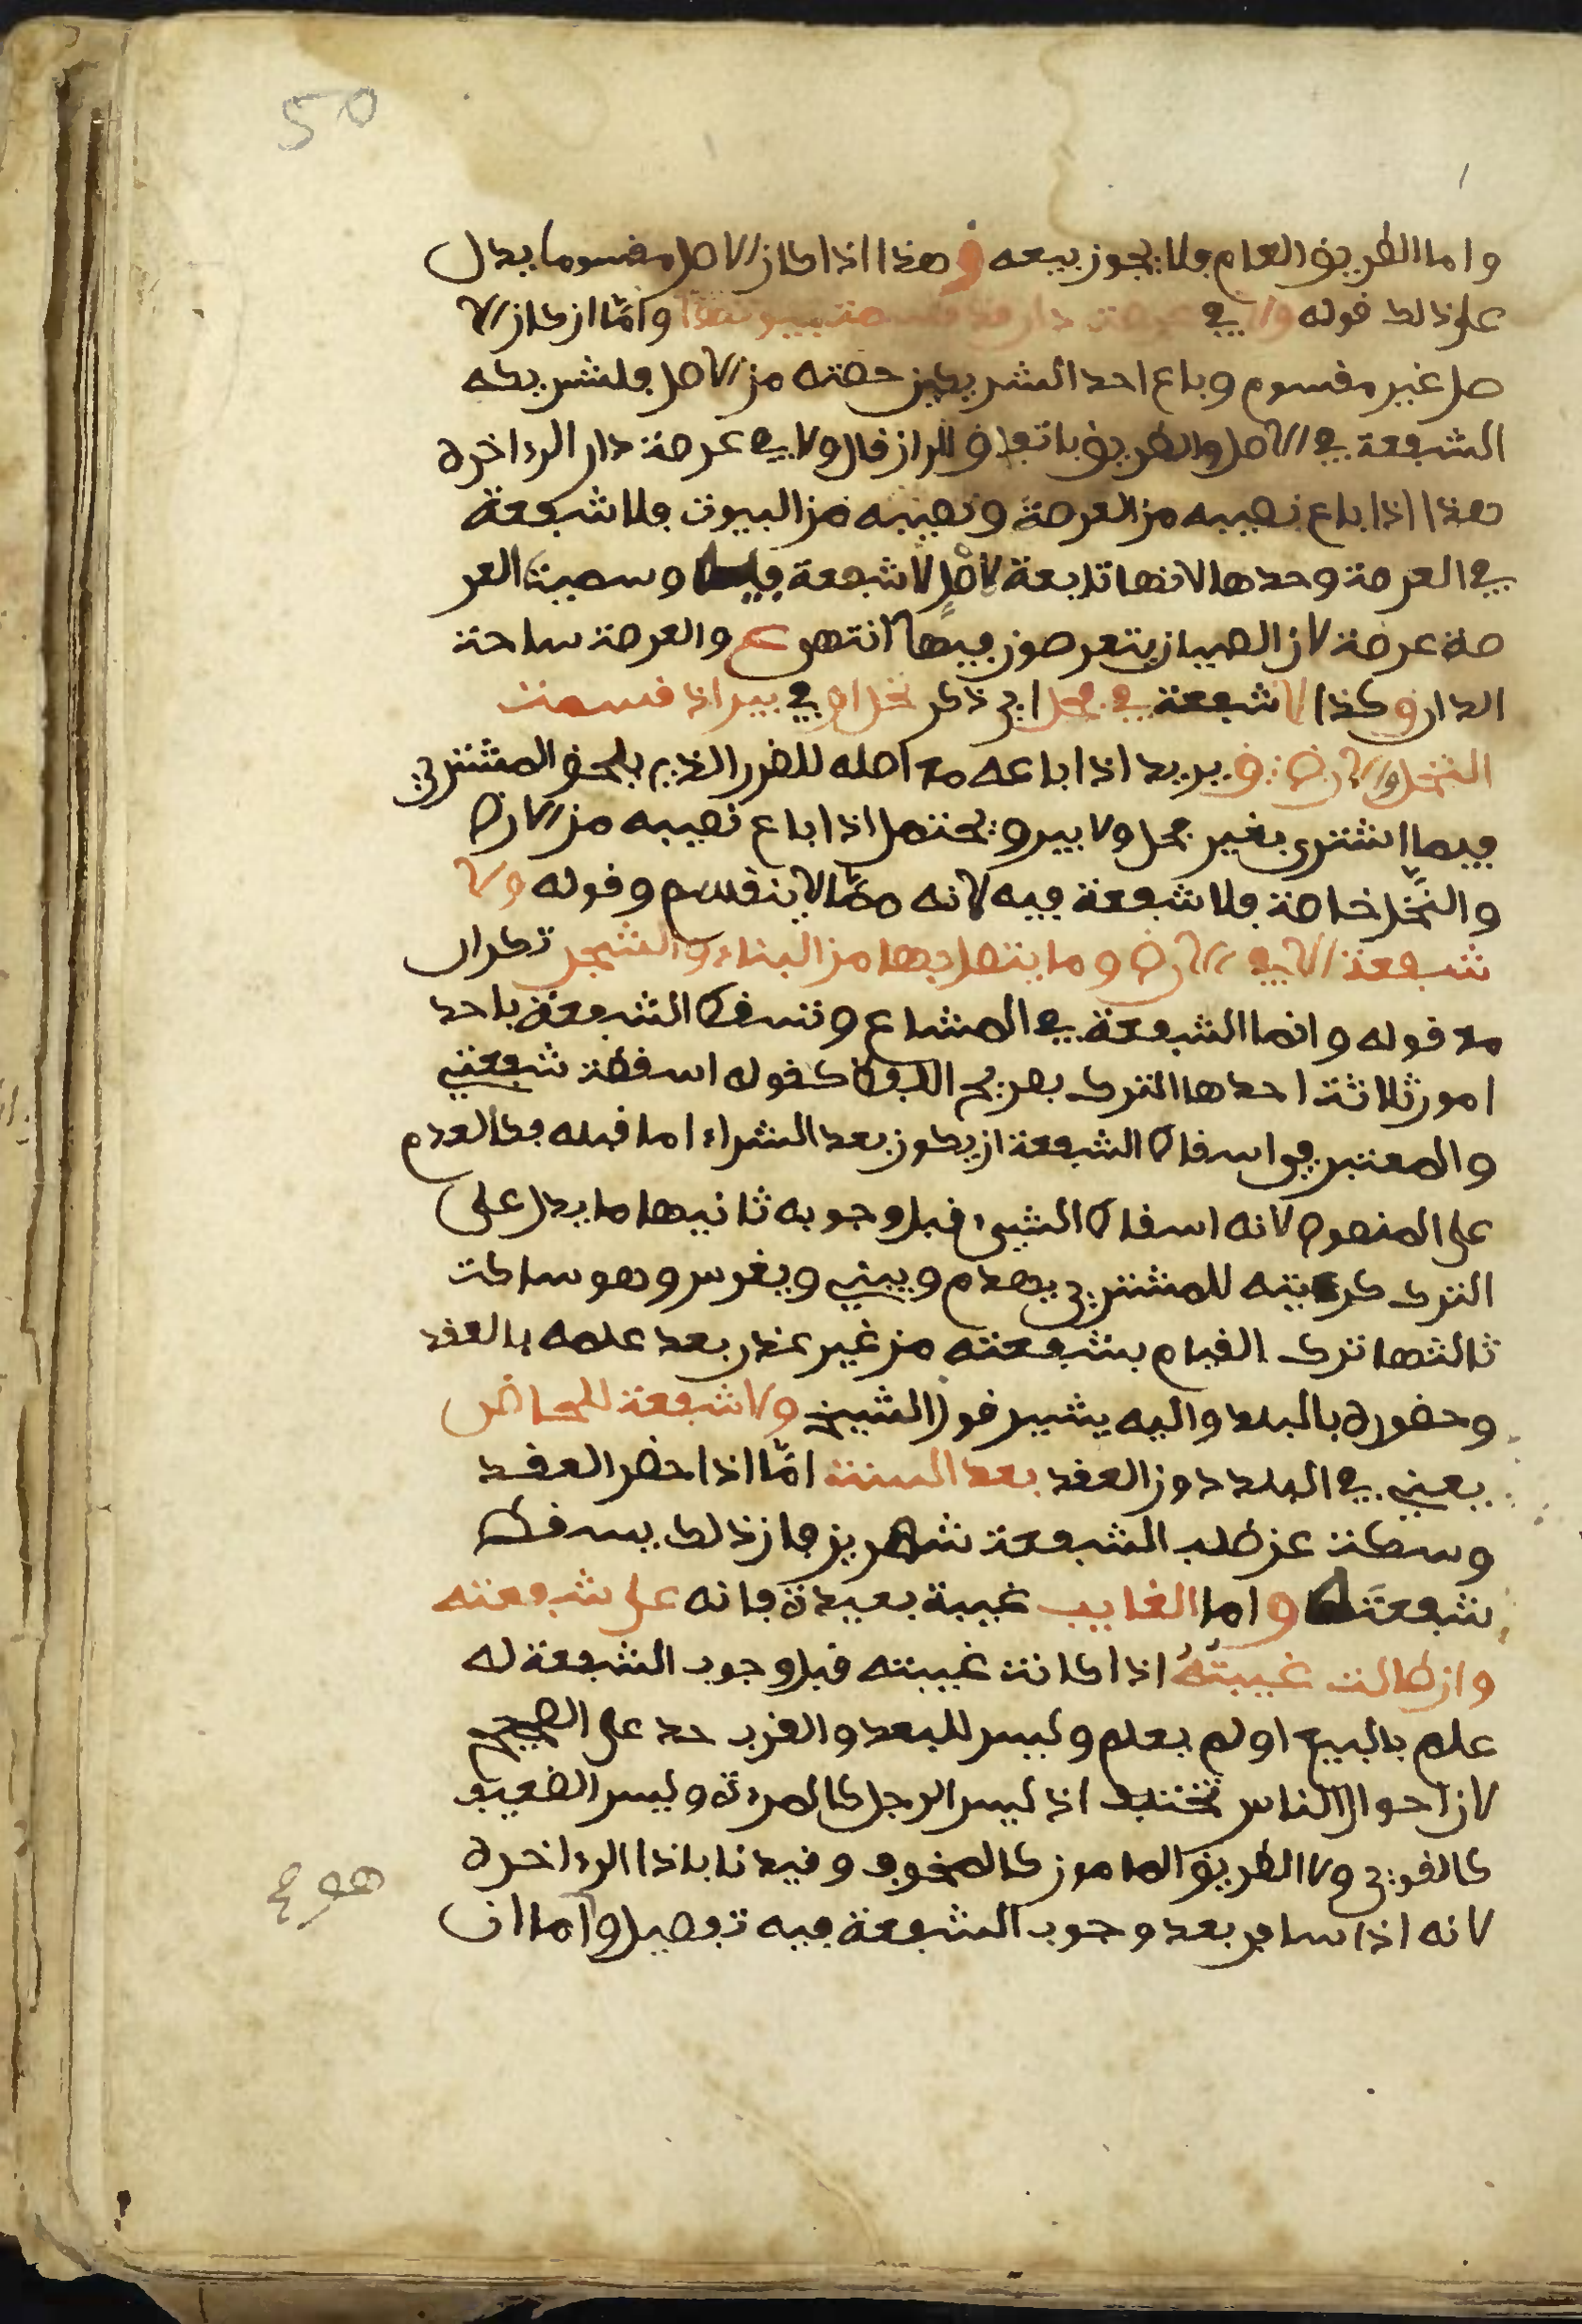 50
واما الطريق العام فلا يجوز بيعه ق هذا اذا كان الاصل مقسوما يدل
على ذلك قوله ولا في عرصة دار قد قسمت بيوتها وامّا ان كان الا
صل غير مقسوم وباع احد الشريكين حصته من الاصل فلشريكه
الشفعة في الاصل والطريق باتفاق قال ولا في عرصة دار الى اخره
هذا اذا باع نصيبه من العرصة ونصيبه من البيوت فلا شفعة
في العرصة وحدها لانها تابعة لاصل لا شفعة فيه وسميت العر
صة عرصة لان الصبيان يتعرصون فيها انتهى ع والعرصة ساحة
الدار وكذا لا شفعة في فحل اي ذكر نخل او في بير اذا قسمت
النخل والارض ق يريد اذا باعه مع اصله للضرر الذي يلحق المشتري
فيما اشترى بغير فحل ولا بير ويحتمل اذا باع نصيبه من الارض
والنّخل خاصة فلا شفعة فيه لانه ممّا لا ينقسم وقوله ولا
شفعة الا في الارض وما يتصل بها من البناء والشجر تكرار
مع قوله وانما الشفعة في المشاع وتسقط الشفعة باحد
امور ثلاثة احدها الترك بصريح اللفظ كقوله اسقطت شفعتي
والمعتبر في اسقاط الشفعة ان يكون بعد الشراء اما قبله فكالعدم
على المنصوص لانه اسقاط الشيء قبل وجوبه ثانيها ما يدل على
الترك كرءيته للمشتري يهدم ويبني ويغرس وهو ساكت
ثالثها ترك القيام بشفعته من غير عذر بعد علمه بالعقد
وحضوره بالبلد واليه يشير قول الشيخ ولا شفعة للحاضر
يعني في البلد دون العقد بعد السنة امّا اذا حضر العقد
وسكت عن طلب الشفعة شهرين فان ذلك يسقط
شفعته واما الغايب غيبة بعيدة فانه على شفعته
وان طالت غيبتهُ اذا كانت غيبته قبل وجوب الشفعة له
علم بالبيع او لم يعلم وليس للبعد والقرب حد على الصحيح
لان احوال الناس تختلف اذ ليس الرجل كالمرءة وليس الضعيف
كالقوي ولا الطريق المامون كالمخوف وقيدنا باذا الى اخره
لانه اذا سافر بعد وجوب الشفعة فيه تفصيل واما ان